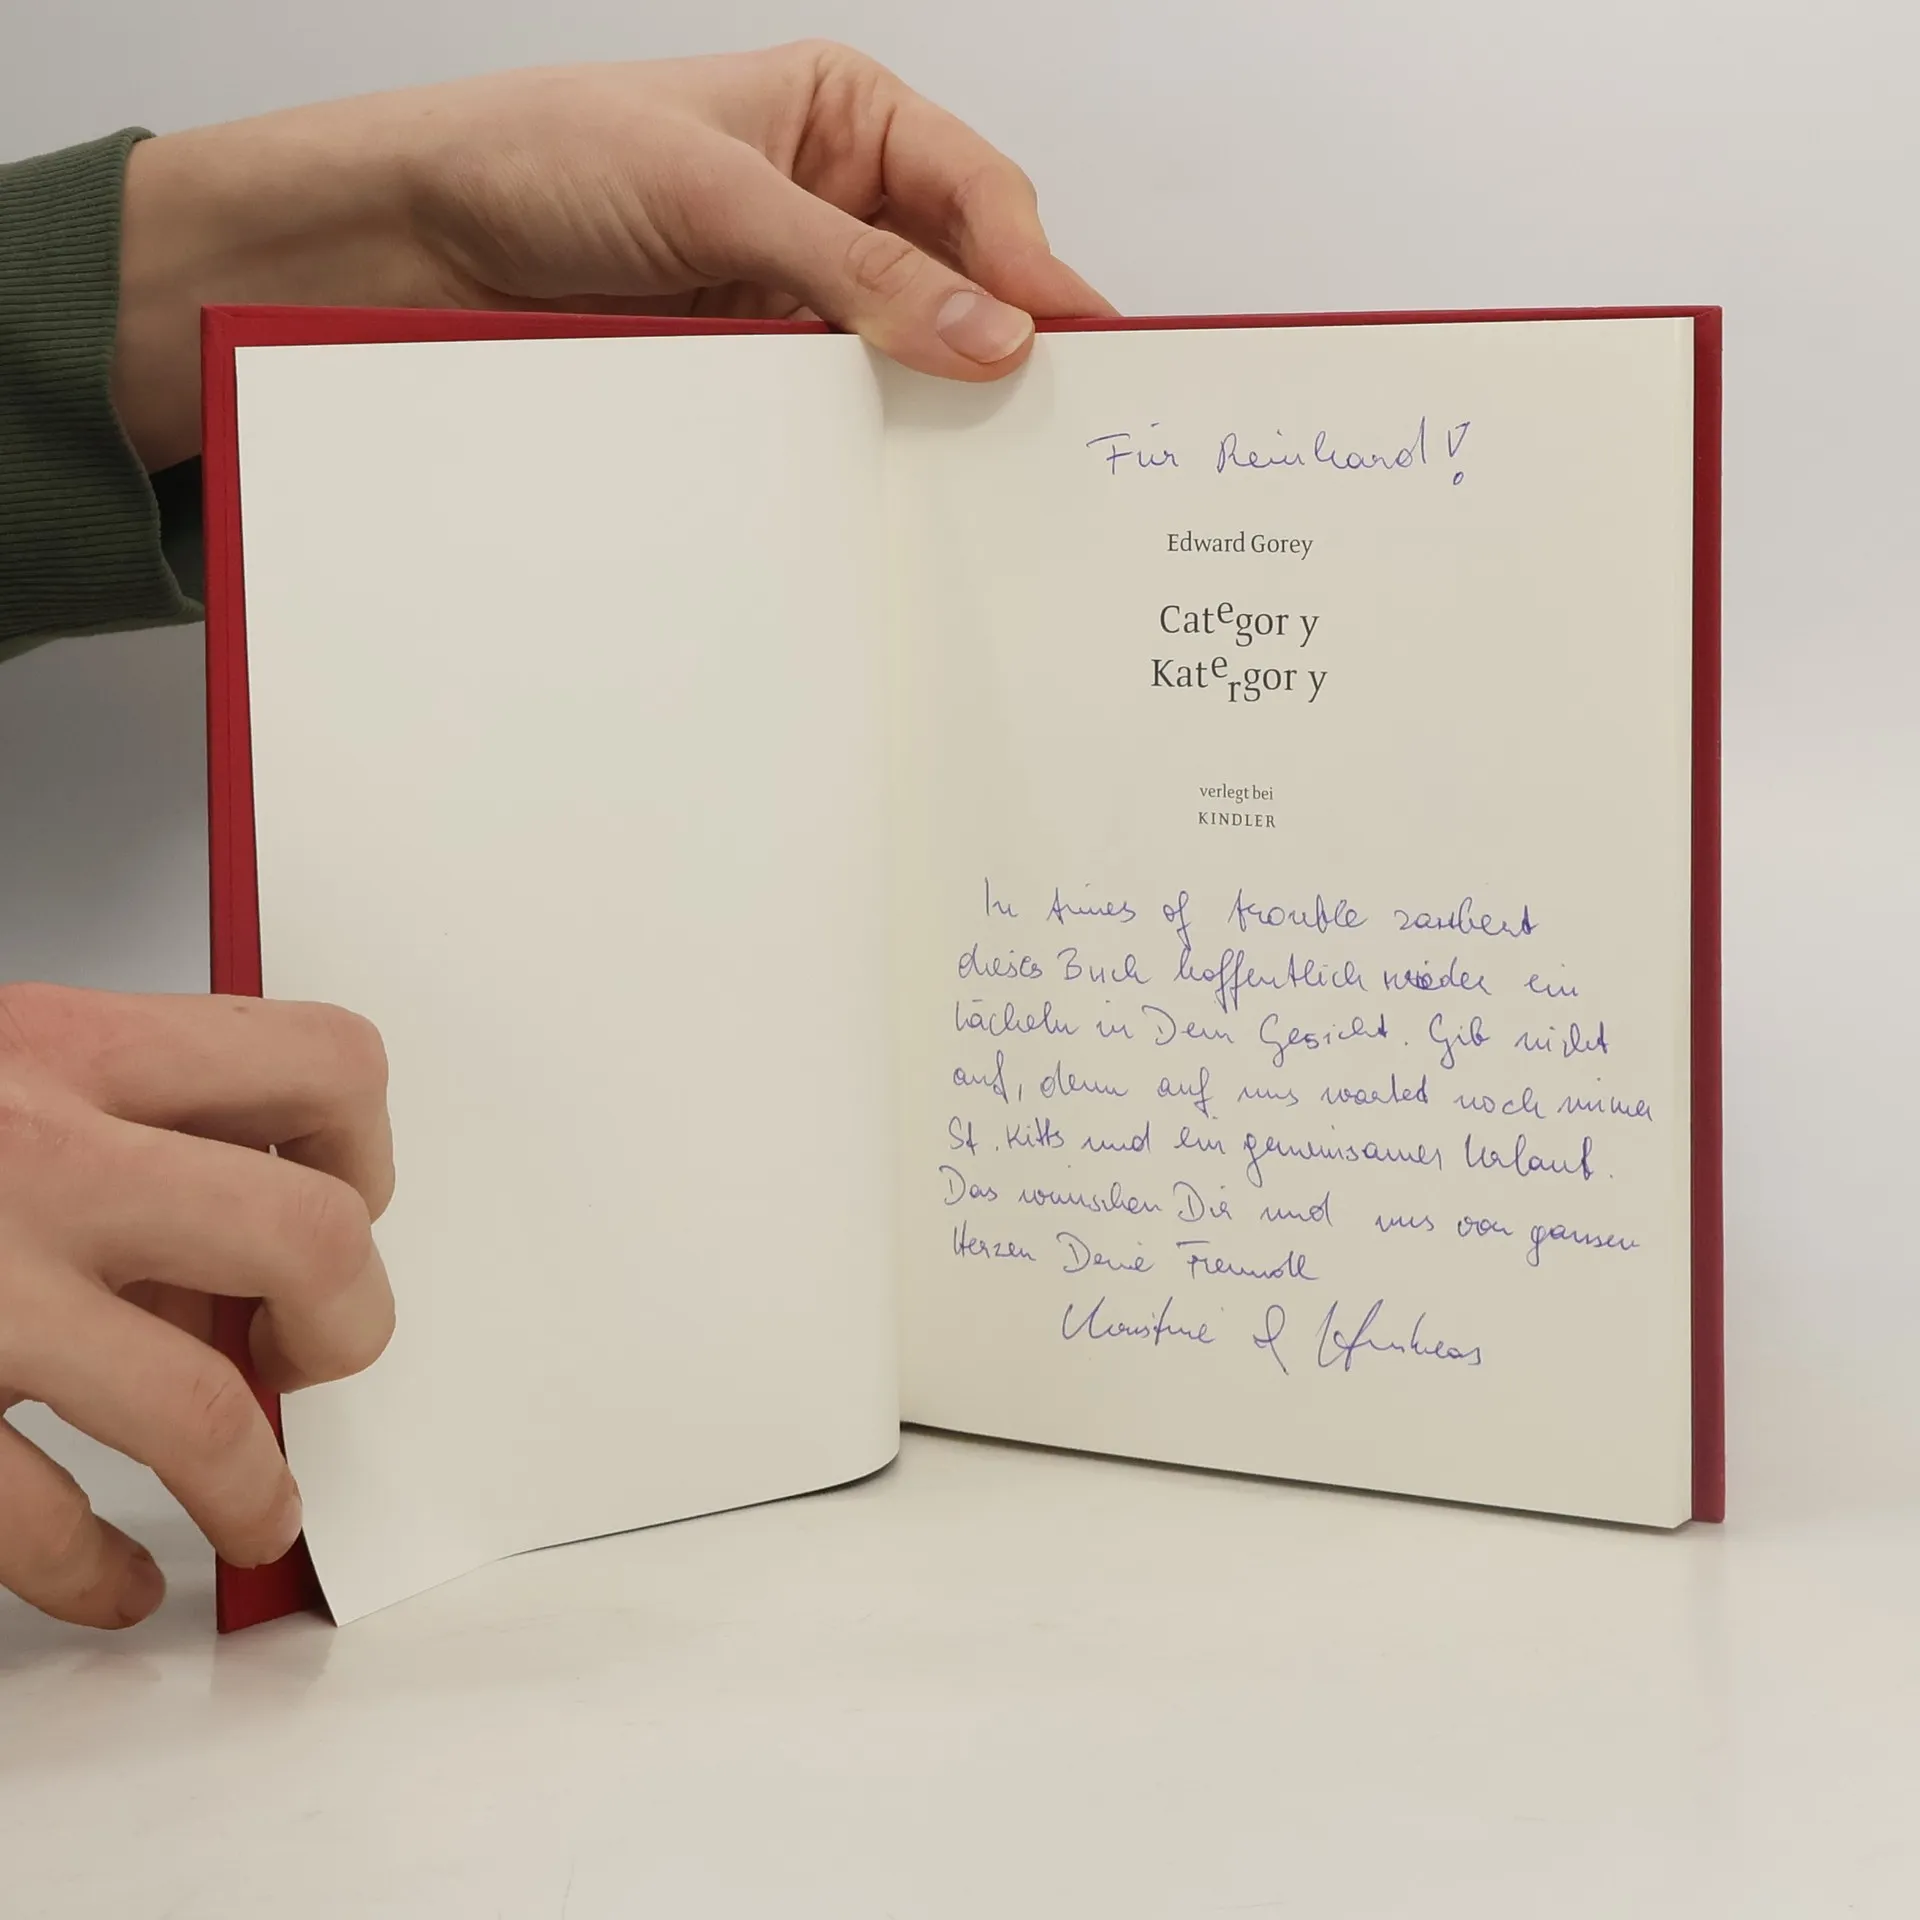 Für Reinhard!
Edward Gorey
Category
Katergory
verlegt bei
KINDLER
In times of trouble zaubert
dieses Buch hoffentlich wieder ein
Lächeln in Dein Gesicht. Gib nicht
auf, denn auf uns wartet noch immer
St. Kitts und ein gemeinsamer Urlaub.
Das wünschen Dir und uns von ganzen
Herzen Deine Freunde
Christine & Andreas